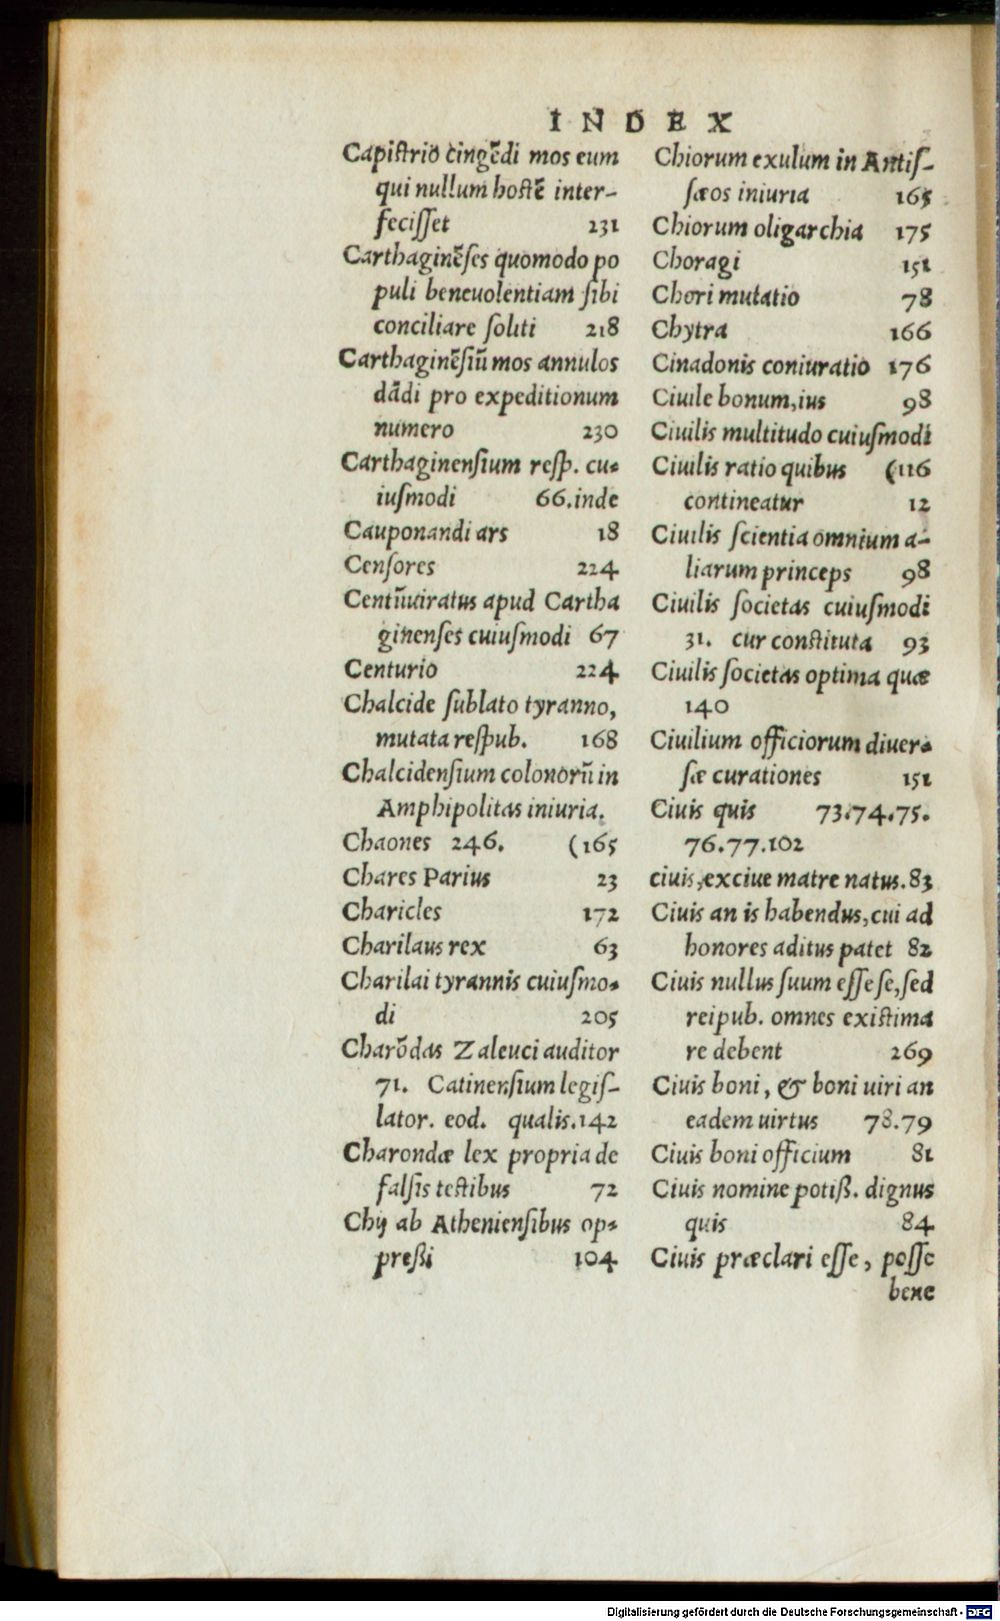 INDEX
Capistriō cingēdi mos eum
qui nullum hostē inter-
fecisset 231
Carthaginēses quomodo po
puli beneuolentiam sibi
conciliare soliti 218
Carthaginēsiū mos annulos
dādi pro expeditionum
numero 230
Carthaginensium resp. cu-
iusmodi 66.inde
Cauponandi ars 18
Censores 224
Centūuiratus apud Cartha
ginenses cuiusmodi 67
Centurio 224
Chalcide sublato tyranno,
mutata respub. 168
Chalcidensium colonorū in
Amphipolitas iniuria.
Chaones 246. (165
Chares Parius 23
Charicles 172
Charilaus rex 63
Charilai tyrannis cuiusmo-
di 205
Charōdas Zaleuci auditor
71. Catinensium legis-
lator. eod. qualis.142
Charondæ lex propria de
falsis testibus 72
Chij ab Atheniensibus op-
preßi 104
Chiorum exulum in Antis-
sæos iniuria 165
Chiorum oligarchia 175
Choragi 151
Chori mutatio 78
Chytra 166
Cinadonis coniuratio 176
Ciuile bonum,ius 98
Ciuilis multitudo cuiusmodi
Ciuilis ratio quibus (116
contineatur 12
Ciuilis scientia omnium a-
liarum princeps 98
Ciuilis societas cuiusmodi
31. cur constituta 93
Ciuilis societas optima quæ
140
Ciuilium officiorum diuer-
sæ curationes 151
Ciuis quis 73.74.75.
76.77.102
ciuis,ex ciue matre natus.83
Ciuis an is habendus,cui ad
honores aditus patet 82
Ciuis nullus suum esse se,sed
reipub. omnes existima
re debent 269
Ciuis boni, & boni uiri an
eadem uirtus 78.79
Ciuis boni officium 81
Ciuis nomine potiß. dignus
quis 84
Ciuis præclari esse, posse
bene
Digitalisierung gefördert durch die Deutsche Forschungsgemeinschaft - DFG